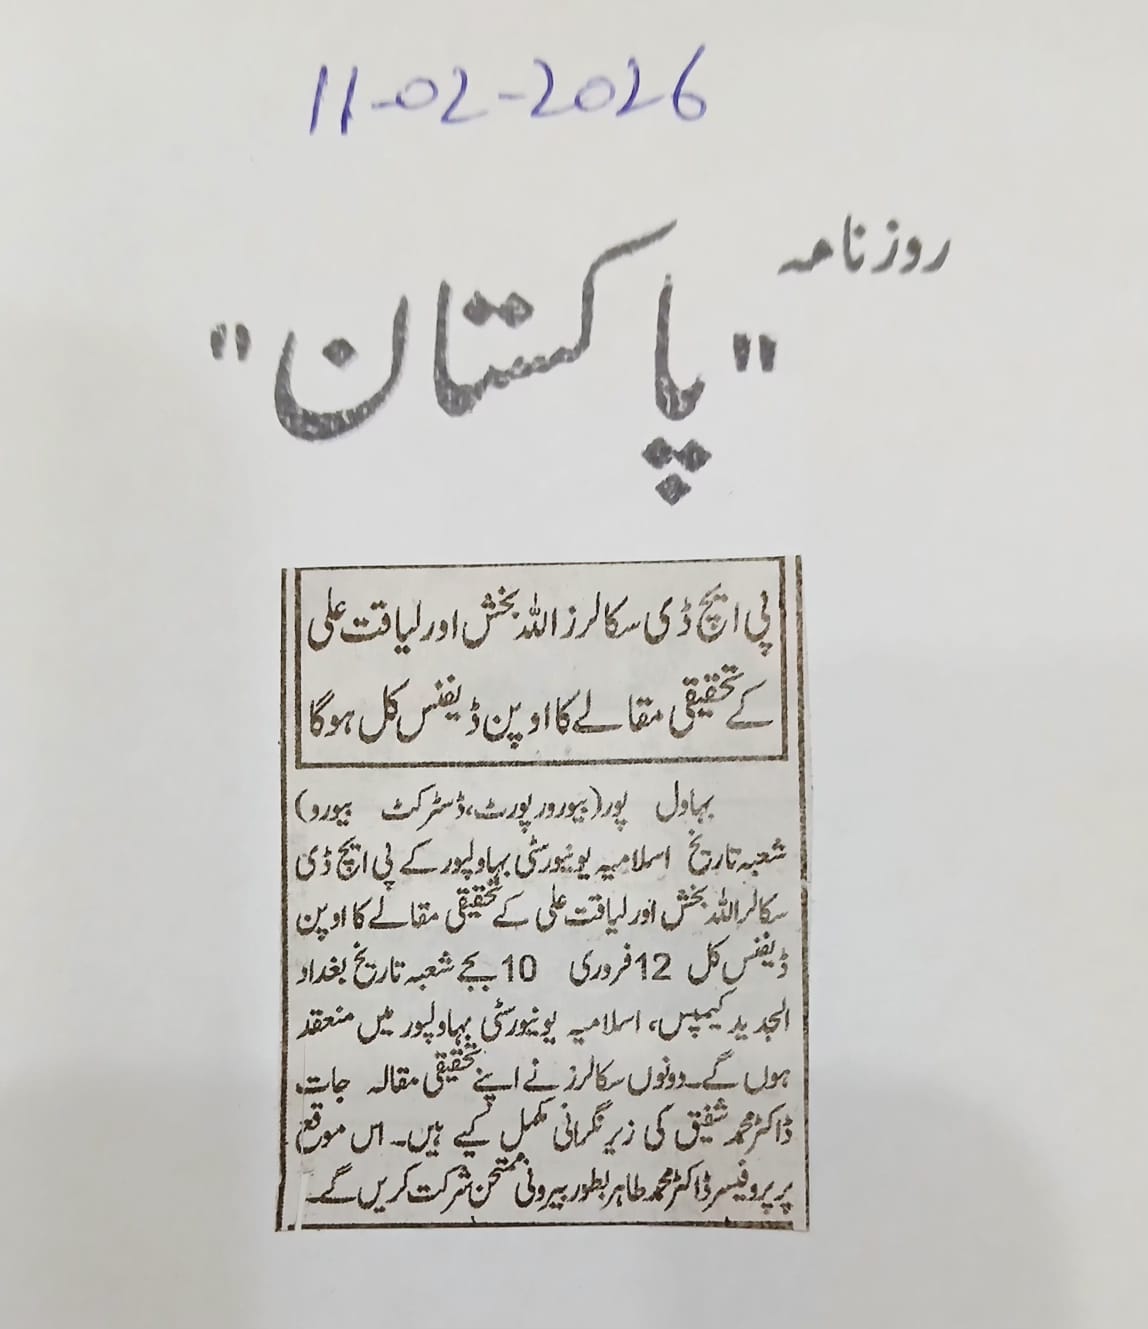 11-02-2026
روزنامہ
"پاکستان"
پی ایچ ڈی سکالرز اللہ بخش اور لیاقت علی
کے تحقیقی مقالے کا اوپن ڈیفنس کل ہوگا
بہاول پور (بیورو رپورٹ، ڈسٹرکٹ بیورو)
شعبہ تاریخ اسلامیہ یونیورسٹی بہاولپور کے پی ایچ ڈی
سکالر اللہ بخش اور لیاقت علی کے تحقیقی مقالے کا اوپن
ڈیفنس کل 12 فروری 10 بجے شعبہ تاریخ بغداد
الجدید کیمپس، اسلامیہ یونیورسٹی بہاولپور میں منعقد
ہوں گے۔ دونوں سکالرز نے اپنے تحقیقی مقالہ جات
ڈاکٹر محمد شفیق کی زیر نگرانی مکمل کیے ہیں۔ اس موقع
پر پروفیسر ڈاکٹر محمد طاہر بطور بیرونی ممتحن شرکت کریں گے۔